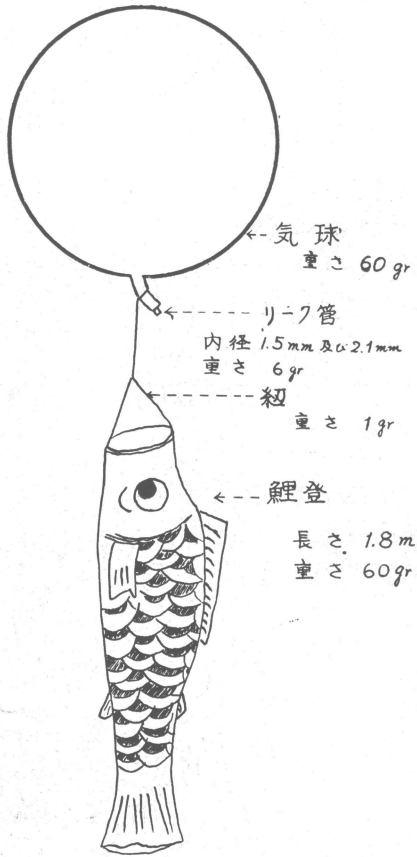 気球
重さ 60gr
リーク管
内径 1.5mm 及び 2.1mm
重さ 6gr
紐
重さ 1gr
鯉登
長さ 1.8m
重さ 60gr